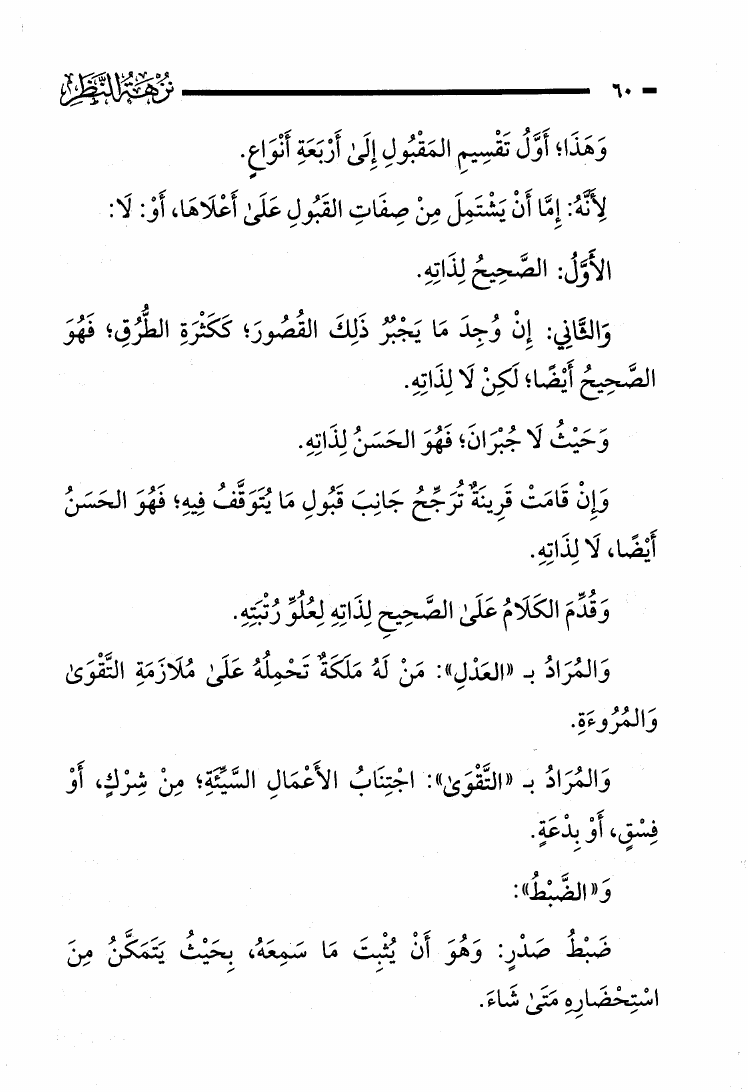 ٦٠ نُزْهَةُ النَّظَرِ
وَهَذَا؛ أَوَّلُ تَقْسِيمِ المَقْبُولِ إِلَىٰ أَرْبَعَةِ أَنْوَاعٍ.
لِأَنَّهُ: إِمَّا أَنْ يَشْتَمِلَ مِنْ صِفَاتِ القَبُولِ عَلَىٰ أَعْلَاهَا، أَوْ: لَا:
الأَوَّلُ: الصَّحِيحُ لِذَاتِهِ.
وَالثَّانِي: إِنْ وُجِدَ مَا يَجْبُرُ ذَلِكَ القُصُورَ؛ كَكَثْرَةِ الطُّرُقِ؛ فَهُوَ
الصَّحِيحُ أَيْضًا؛ لَكِنْ لَا لِذَاتِهِ.
وَحَيْثُ لَا جُبْرَانَ؛ فَهُوَ الحَسَنُ لِذَاتِهِ.
وَإِنْ قَامَتْ قَرِينَةٌ تُرَجِّحُ جَانِبَ قَبُولِ مَا يُتَوَقَّفُ فِيهِ؛ فَهُوَ الحَسَنُ
أَيْضًا، لَا لِذَاتِهِ.
وَقُدِّمَ الكَلَامُ عَلَىٰ الصَّحِيحِ لِذَاتِهِ لِعُلُوِّ رُتْبَتِهِ.
وَالمُرَادُ بـ «العَدْلِ»: مَنْ لَهُ مَلَكَةٌ تَحْمِلُهُ عَلَىٰ مُلَازَمَةِ التَّقْوَىٰ
وَالمُرُوءَةِ.
وَالمُرَادُ بـ «التَّقْوَىٰ»: اجْتِنَابُ الأَعْمَالِ السَّيِّئَةِ؛ مِنْ شِرْكٍ، أَوْ
فِسْقٍ، أَوْ بِدْعَةٍ.
وَ«الضَّبْطُ»:
ضَبْطُ صَدْرٍ: وَهُوَ أَنْ يُثْبِتَ مَا سَمِعَهُ، بِحَيْثُ يَتَمَكَّنُ مِنَ
اسْتِحْضَارِهِ مَتَىٰ شَاءَ.